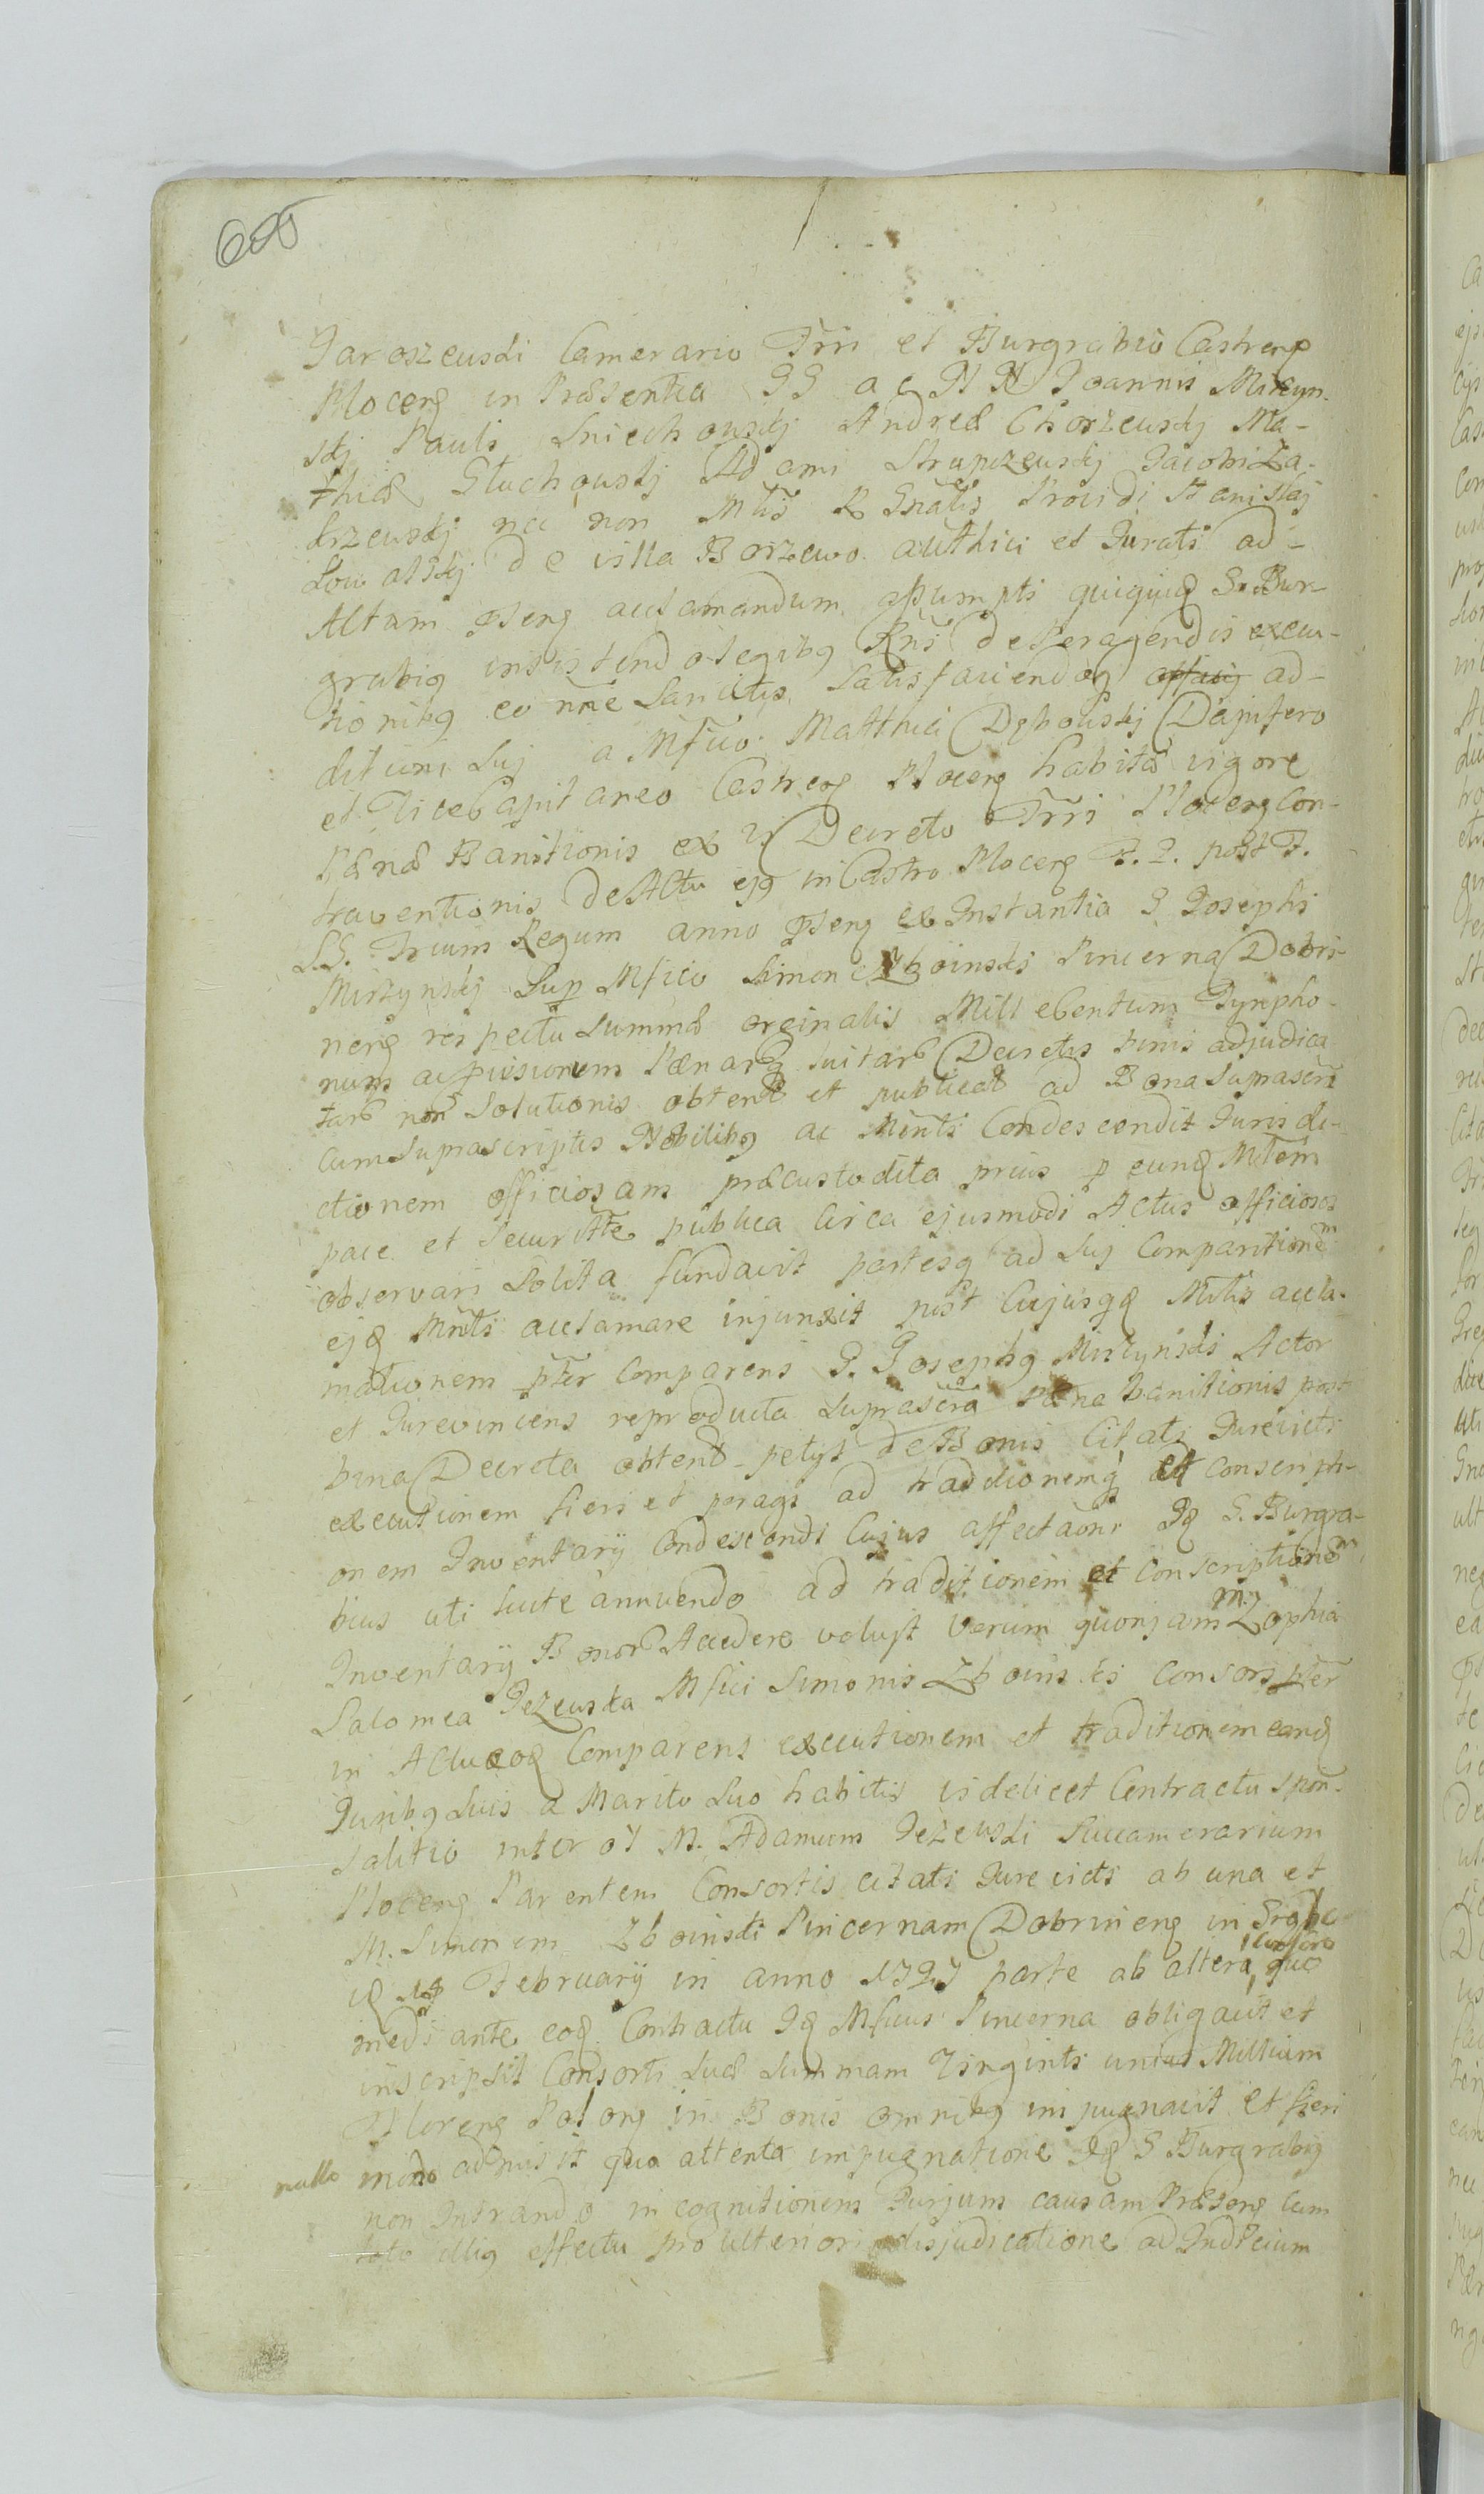 600
Jaroszewski Camerario Trri et Burgrabio Castreng
Ploceng in Præsentia GG ac NN Joannis Mireyn-
skj Pauli Sniechowskj Andreæ Chorzewskj Ma-
thiæ Głuchowskj Adami Strupczewskj Jacobi Za-
krzewskj nec non Mtis R Gnalis Providi Stanislaj
Kowalskj de villa Borzewo authici et Jurati ad-
Altam Pseng acclamandum assumpti quiquid G. Bur-
grabig insistendo legibg Rni de peragendis execu-
tionibg eo nne Sancitis, Satisfaciendoq officij ad-
ditium Suj a Mfico Matthei Dębowskj Dapifero
et ViceCapitaneo Castreng Ploceng habitæ vigore
Pænæ Banitionis ex vj Decreto Trri Ploceng Con-
traventionis de Actu ejg in Castro Ploceng F. 2. post F.
S.S. Trium Regum anno Pseng ex Instantia G Josephi
Mirzynskj Sup Mfico Simone Zboinski Pincerna Dobri-
neng respectu Summæ orginalis Mille Centum Tympho-
num ac pioionum Pænarq luitar Decretis binis adjudica
tar non Solutionis obtent et publicat ad Bona Suprascri
cum Suprascriptis Nobilibg ac Minti Condescendit Jurisdi-
ctionem officiosam præcustodita prius p eund Mtem
pace et Securitte publica circa ejusmodi Actus officiosos
observari Solita fundavit partesq ad Suj Comparitionem
ejd Mnti acclamare injunxit post Cujusqd Mtis accla-
mationem pter Comparens G. Josephg Mirzynski Actor
et Jurevincens reproducta Suprascra Pæna Banitionis post
bina Decreta obtent petyt de Bonis Citati Jurevicti
executionem fieri et peragi ad traditionemq et Conscripti-
onem Inventarij Condescendi Cujus affectaoni Id G. Burgra-
bius uti iuste annuendo ad traditionem et Conscriptionem
Inventarij Bonor Accedere voluit Verum quonjam M. Zophia
Salomea Jezewska Mfici Simonis Zboinski Consors pter
in Actu eod Comparens executionem et traditionem eand
Juribg Suis a Marito Suo habitis videlicet Contractu Spon-
salitio inter oj M. Adamum Jezewski Succamerarium
Ploceng Parentem Consortis citati Jurevicti ab una et
M. Simonem Zboinski Pincernam Dobrineng in
Februarij in anno 1727 parte ab altera quo
mediante eod Contractu Id Mficus Pincerna obligavit et
inscripsit Consorti Suæ Summam Viginti unius Millium
Floreng Polong in Bonis omnibg impugnavit et fieri
nullo modo admisit qua attenta impugnatione Id G Burgrabig
non Intrando in cognitionem Jurjum causam Præseng Cum
toto illig effectu pro ulteriori disjudicatione ad Judicium